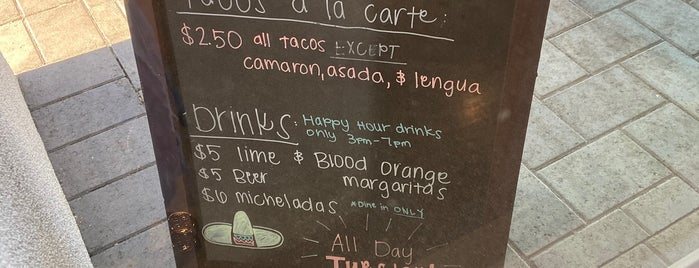 Tacos a la carte:
$2.50 all tacos EXCEPT
camaron, asada, & lengua
Drinks: Happy Hour drinks
only 3pm-7pm
$5 lime & Blood orange
margaritas
$5 Beer
$6 micheladas *Dine in ONLY
All Day